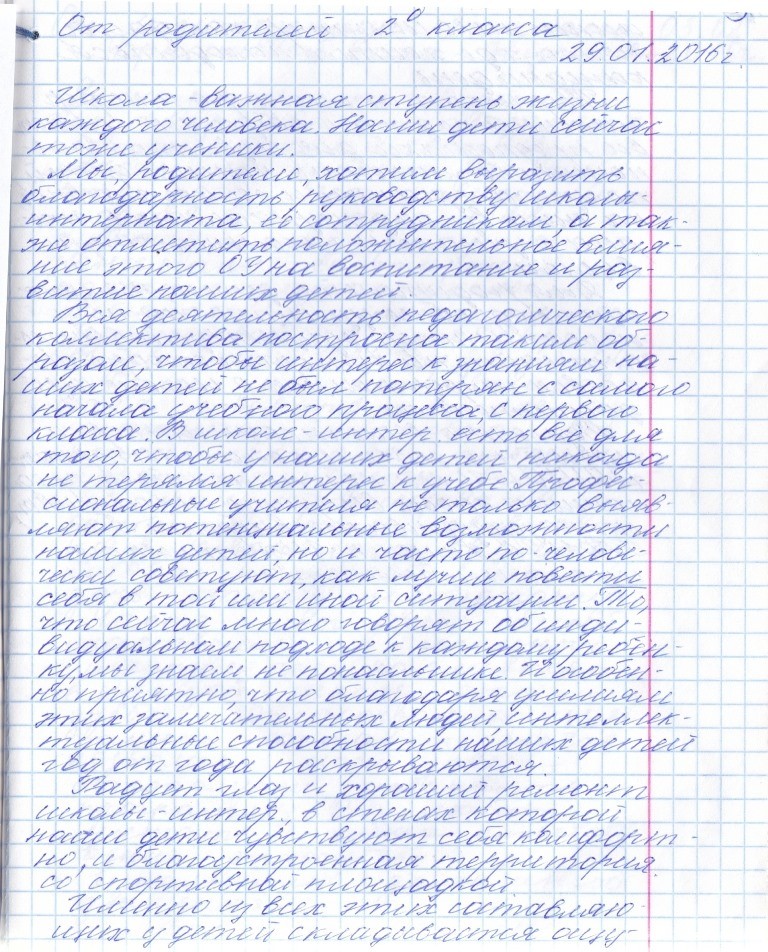 От родителей 2⁰ класса
29.01.2016г.
Школа - важная ступень жизни
каждого человека. Наши дети сейчас
тоже ученики.
Мы, родители, хотим выразить
благодарность руководству школы-
интерната, её сотрудникам, а так-
же отметить положительное влия-
ние этого ОУ на воспитание и раз-
витие наших детей.
Вся деятельность педагогического
коллектива построена таким об-
разом, чтобы интерес к знаниям на-
ших детей не был потерян с самого
начала учебного процесса, с первого
класса. В школе-интер. есть все для
того, чтобы у наших детей никогда
не терялся интерес к учебе. Профес-
сиональные учителя не только выяв-
ляют потенциальные возможности
наших детей, но и часто по-челове-
чески советуют, как лучше повести
себя в той или иной ситуации. То,
что сейчас много говорят об инди-
видуальном подходе к каждому ребён-
ку, мы знаем не понаслышке. И особен-
но приятно, что благодаря усилиям
этих замечательных людей, интеллек-
туальные способности наших детей
год от года раскрываются.
Радует глаз и хороший ремонт
школы-интер., в стенах которой
наши дети чувствуют себя комфорт-
но, и благоустроенная территория
со спортивной площадкой.
Именно из всех этих составляю-
щих у детей складывается ощу-